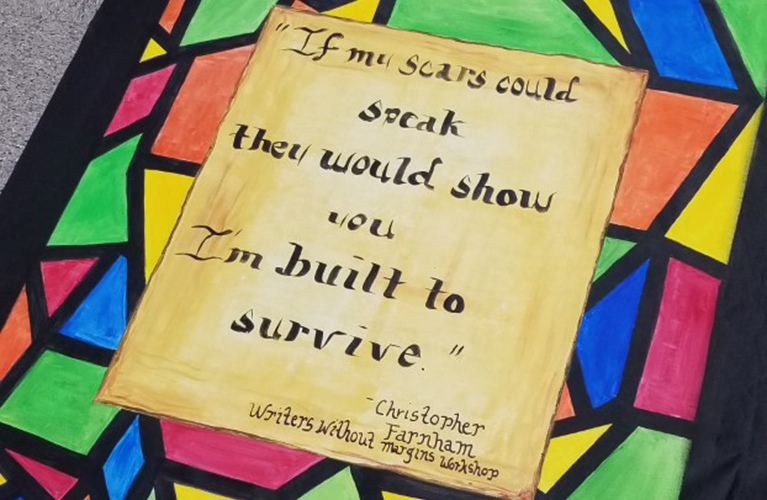 "If my scars could
speak
they would show
you
I'm built to
survive."
-Christopher
Farnham
Writers Without Margins Workshop